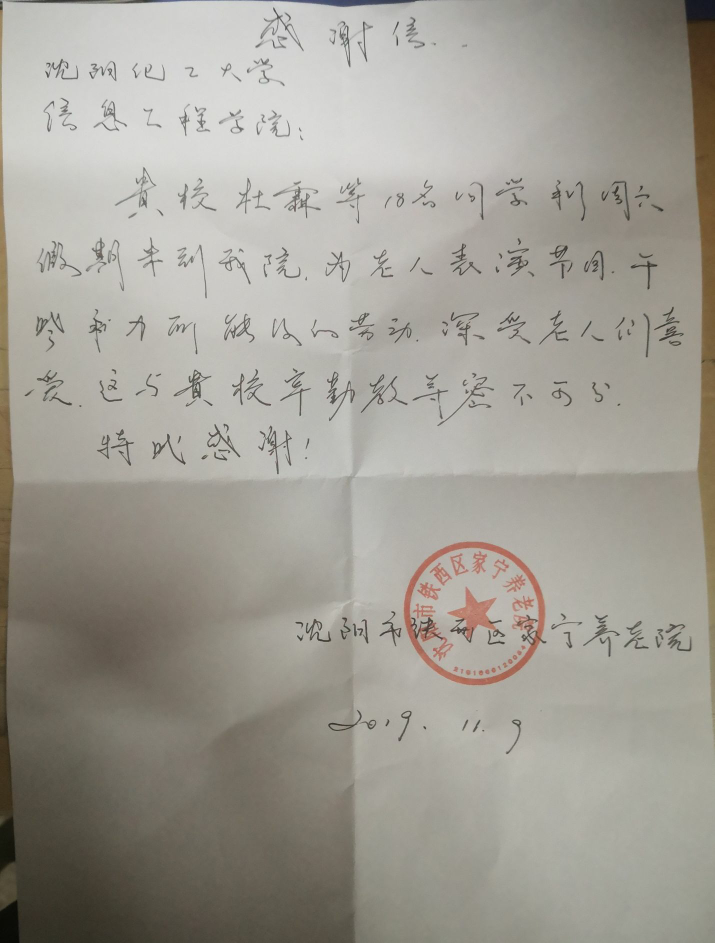 感谢信.
沈阳化工大学
信息工程学院:
貴校杜霖等18名同学利周六
假期来到我院.为老人表演节目.干
些力所能及的劳动.深受老人们喜
爱.这与貴校辛勤教导密不可分.
特此感谢!
沈阳市铁西区家宁养老院
沈阳市铁西区家宁养老院
2019.11.9